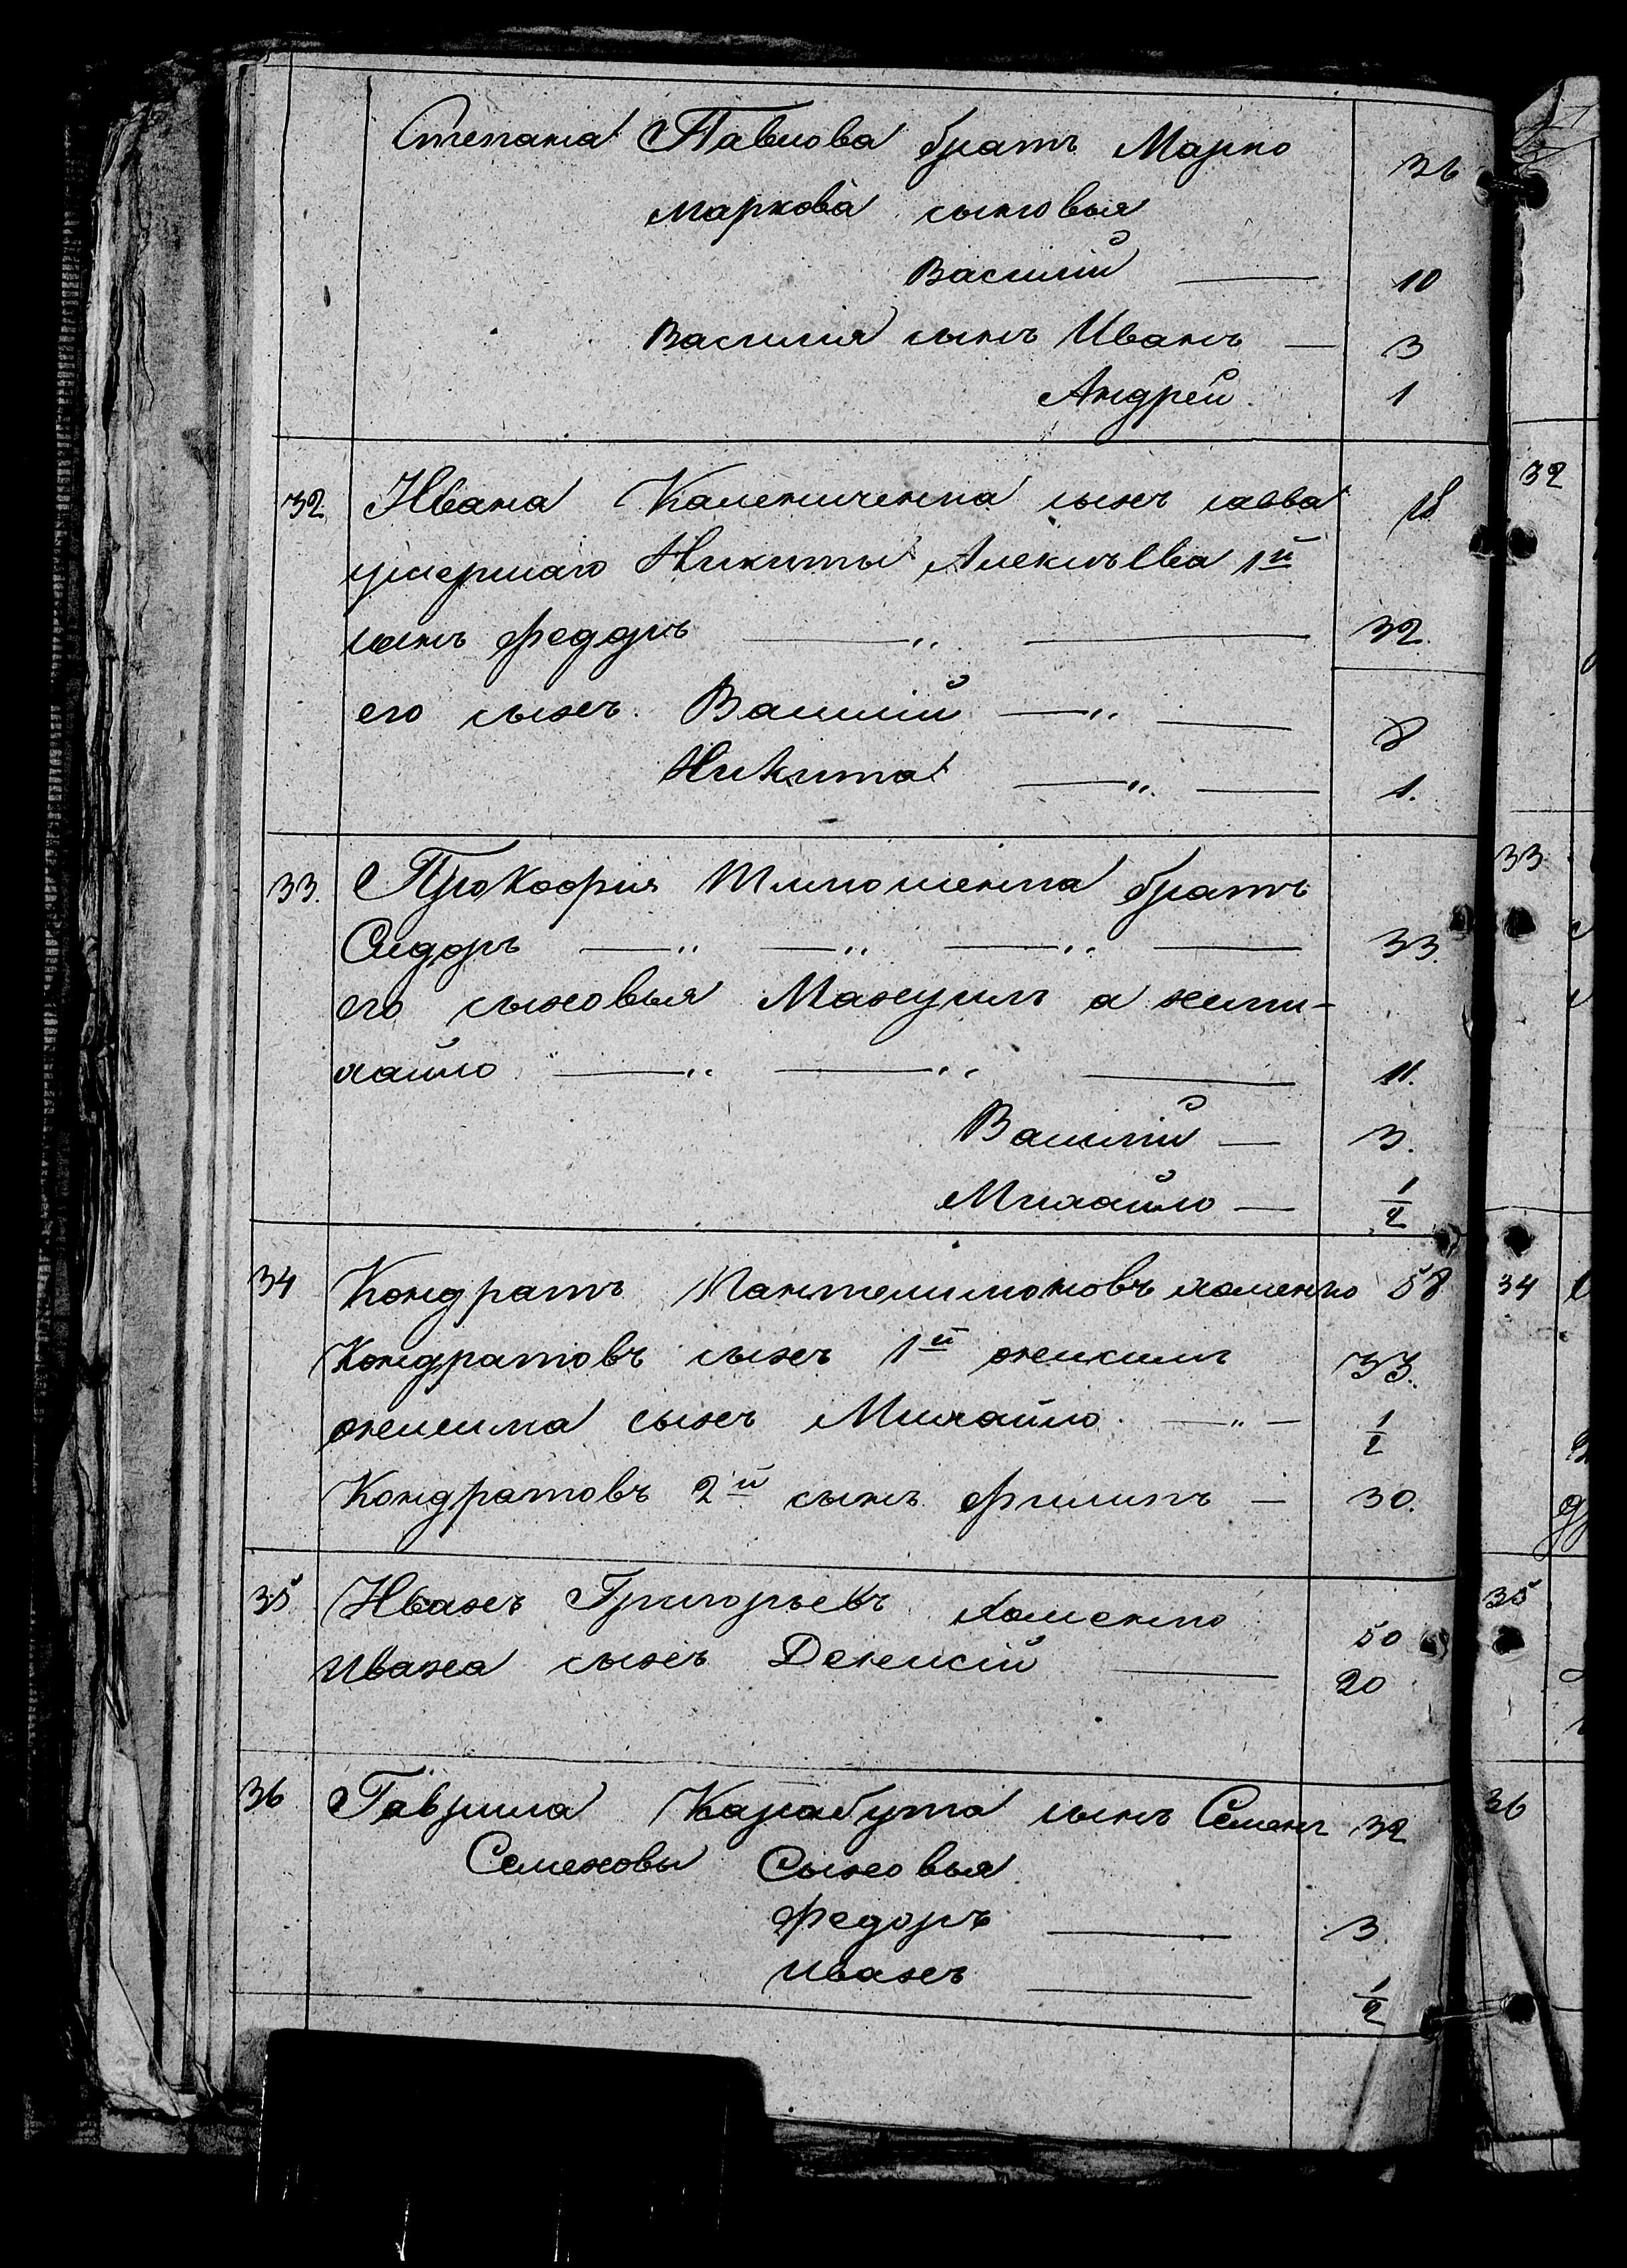 Степана Павлова братъ Марко 36
Маркова сыновья
Василій — 10
Василия сынъ Иванъ — 3
Андрей 1
32. Ивана Калениченка сынъ савва 18
умершаго Никиты Алексѣева 1й
сынъ федоръ — „ — 32.
его сынъ. Василій — „ — 8
Никита — „. — 1.
33. Прокофия Тимошенка братъ
Сидоръ — „ — „ — „ — 33.
его сыновья Мануил а
хайло — „ — „ — 11.
Василій — 3.
Михайло — 1/2
34 Кондратъ Пантелимоновъ хоменко 58
Кондратовъ сынъ 1й онисимъ 33.
онисима сынъ Михайло — „ — 1/2
Кондратовъ 2й сынъ филипъ — 30.
35 Иванъ Григорьевъ хоменко 50
Ивана сынъ Денисій — 20
36 Гаврила Карабута сынъ Семенъ 32
Семеновы Сыновья
федоръ — 3
Иванъ — 1/2
32
33
34
35
36